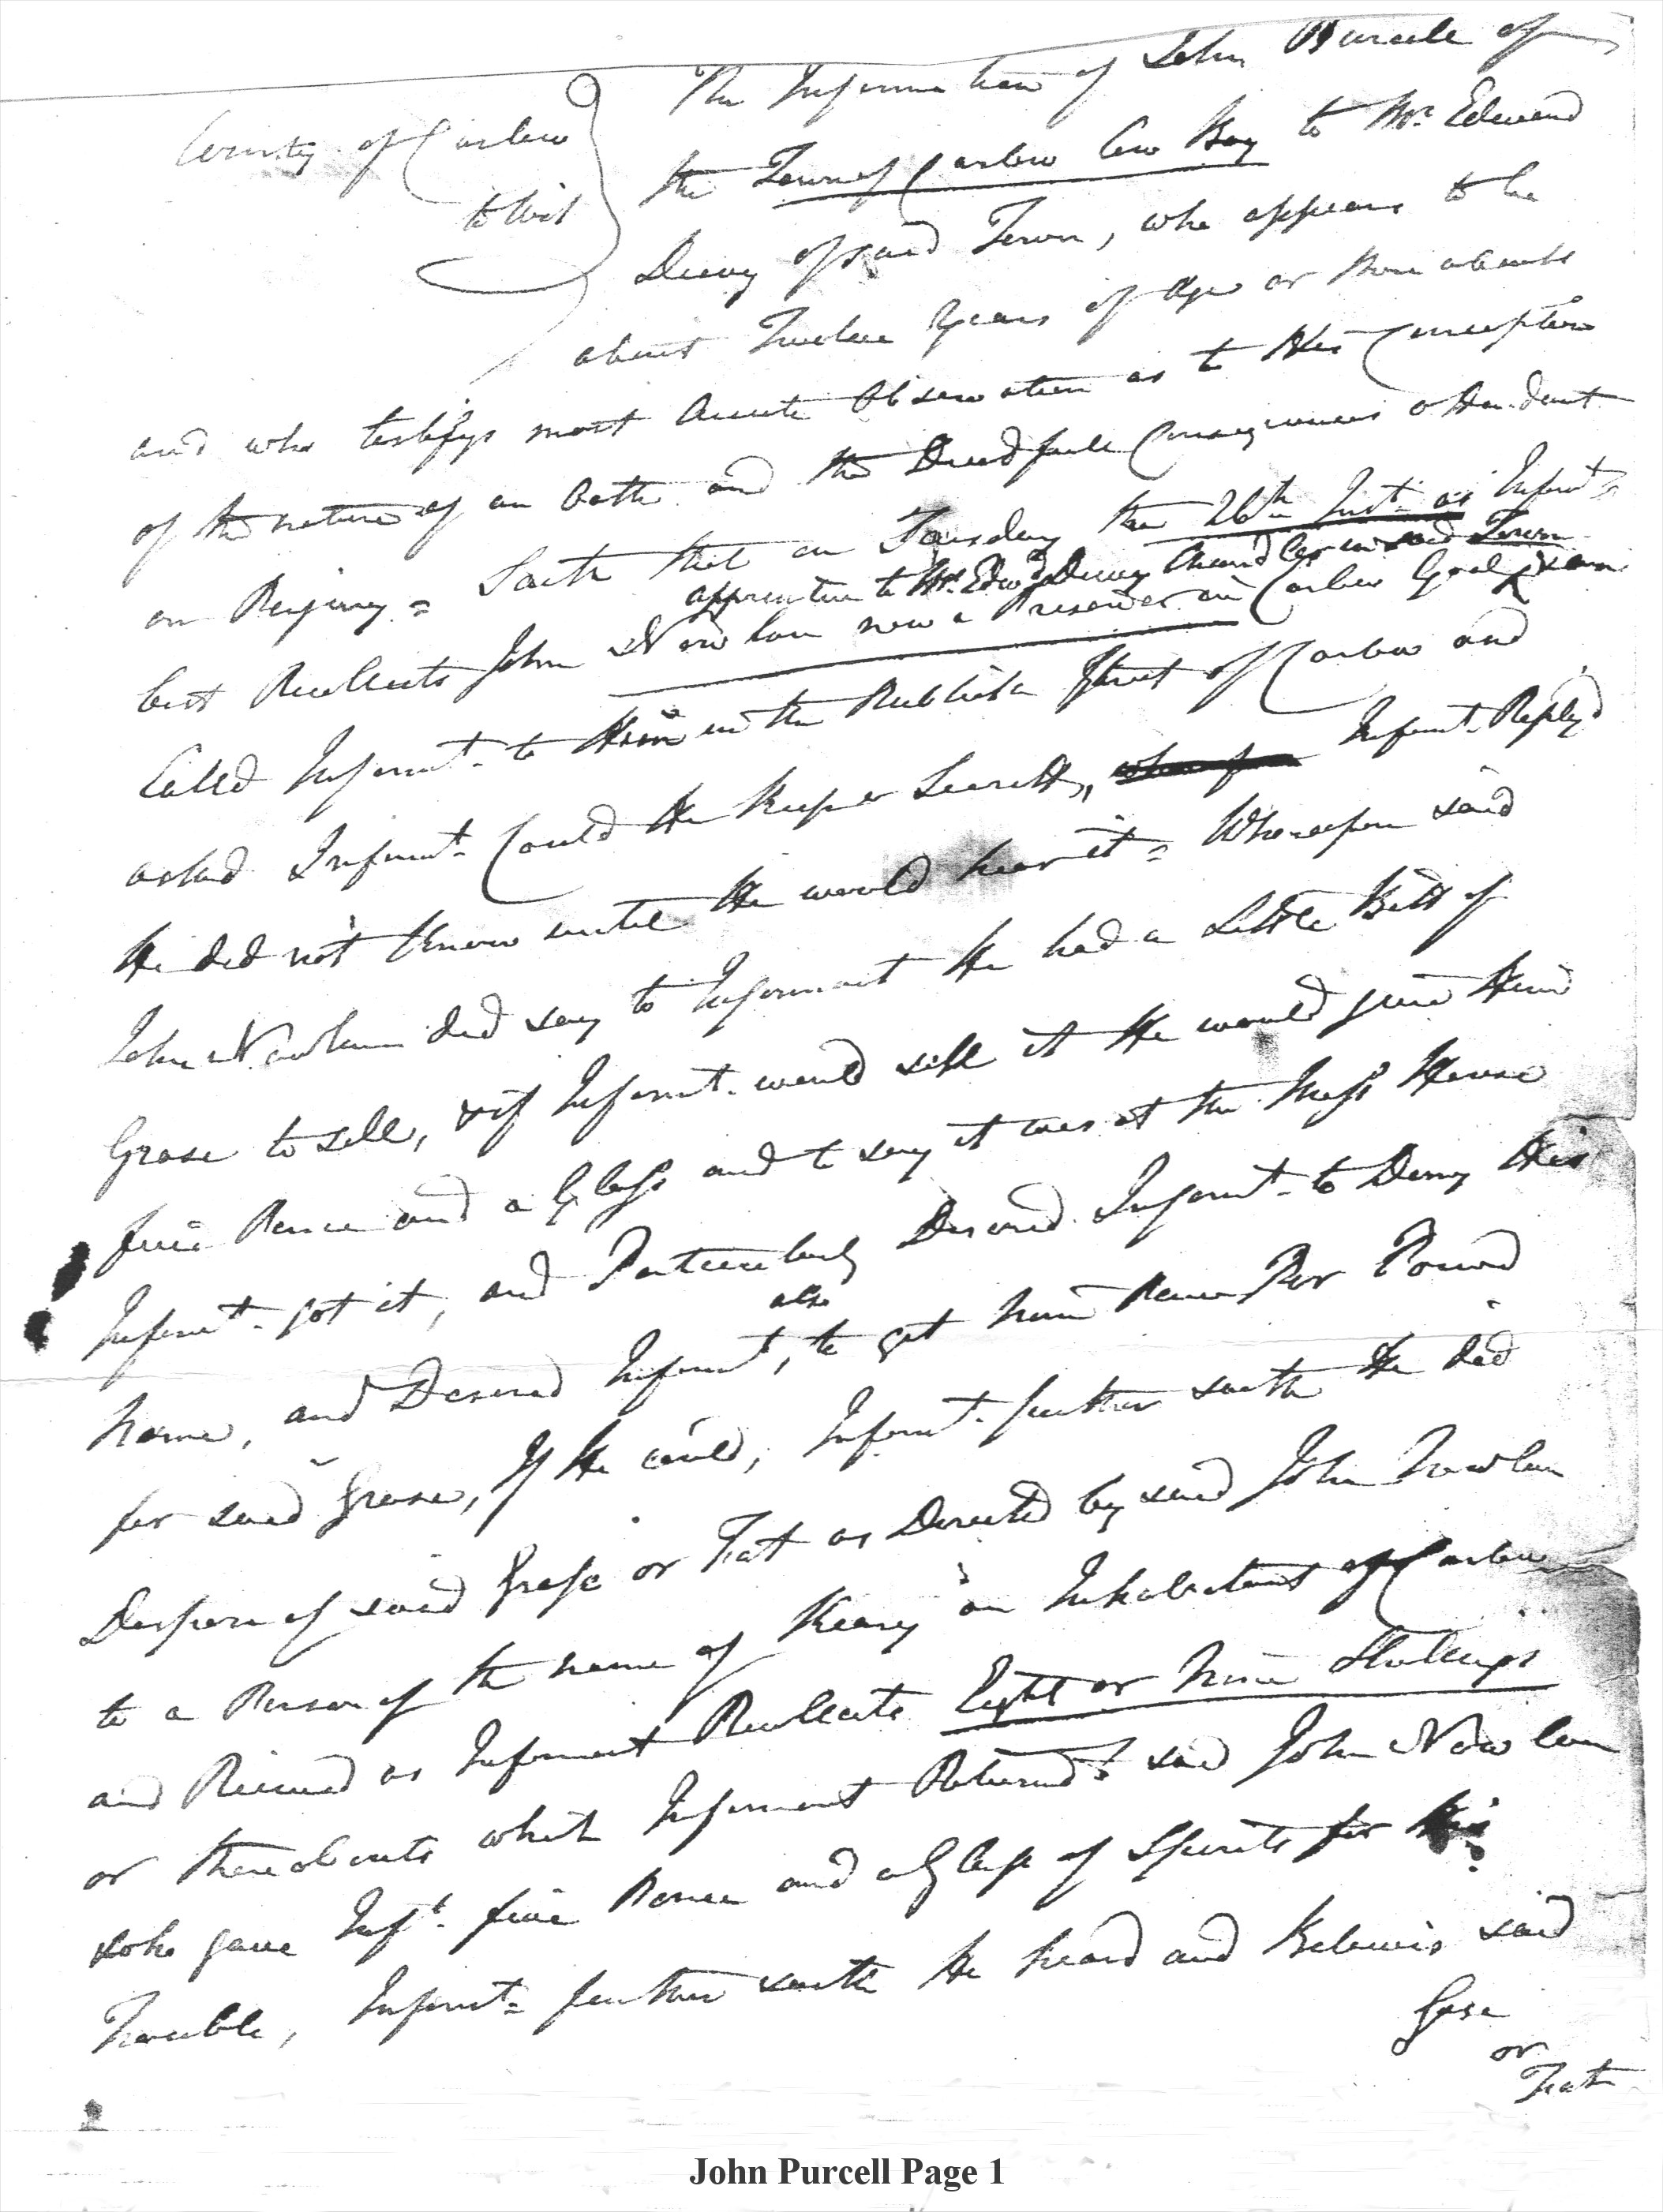 County of Carlow
to Wit
The Information of John Purcell of
the Town of Carlow Cow Boy to Mr. Edward
Duvy of said Town, who appears to be
about Twelve Years of Age or thereabouts
and who testifys most Acute Observation as to His Conception
of the nature of an Oath and the Dreadfull Consequences attendant
on Perjury = Saith that on Tuesday the 26th Inst. as Informt.
apprentice to Mr. Edwd. Duvy Chandler in said Town
best Recollects John Nowlan now a Prisoner in Carlow Goal
Called Informt. to Him in the Publick Street of Carlow and
asked Informt. Could He Keep a Secrett, Informt. Reply'd
He did not Know untill He would hear it = Whereupon said
John Nowlan did say to Informant He had a Little Bitt of
Grase to sell, & if Informt. would sell it He would give Him
five Pence and a Glass and to say it was at the Mass House
Informt. got it, and Particularly Desired Informt. to Deny His
name, and Desired Informt. also, to get nine Pence Per Pound
for said Grase, If He could, Informt. further saith He did
Dispose of said Grase or Fat as Directed by said John Nowlan
to a Person of the name of Keary an Inhabitant of Carlow
and Received as Informant Recollects Eight or Nine Shillings
or thereabouts which Informant Returned to said John Nowlan
who gave Inft. five Pence and a Glass of Spirits for His
Trouble, Informt. further saith He heard and Believes said
Grase
or
Fat
2
John Purcell Page 1